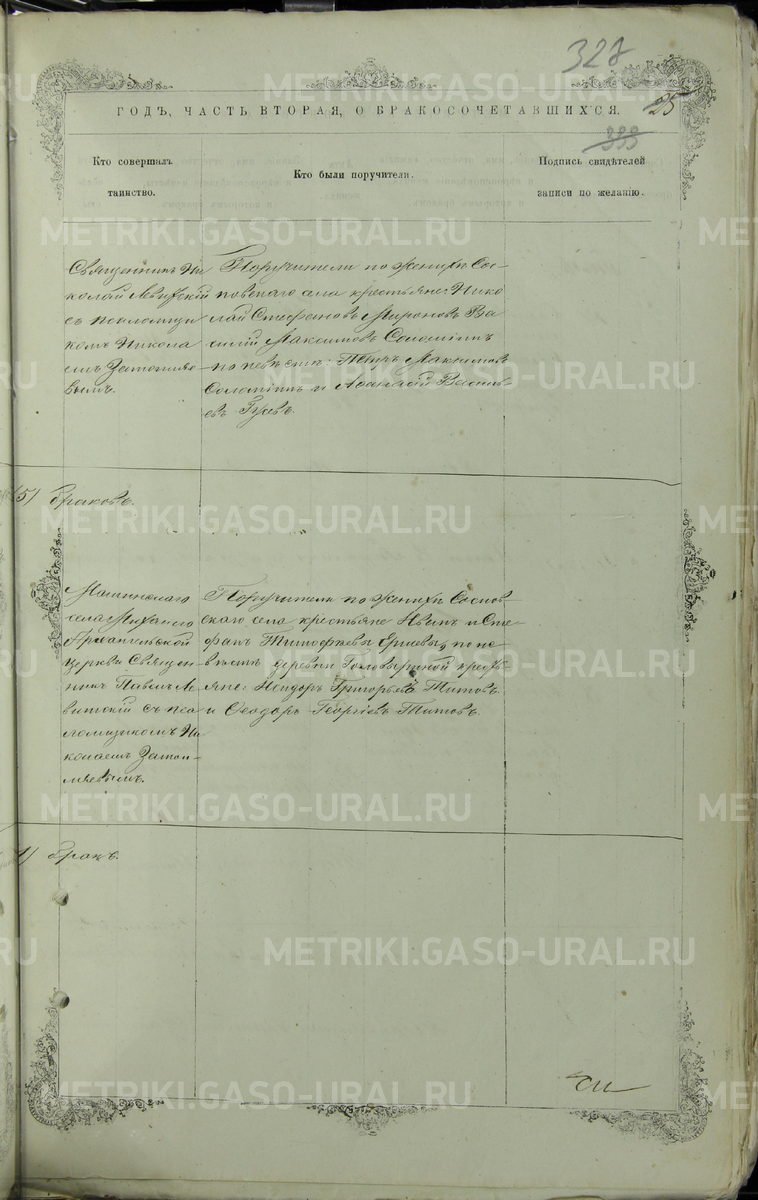 327
ГОДЪ, ЧАСТЬ ВТОРАЯ, О БРАКОСОЧЕТАВШИХСЯ.
25
333
Кто совершалъ
таинство.
Кто были поручители.
Подпись свидѣтелей
записи по желанію.
Священникъ Ни
колай Левитскій
съ псаломщи
комъ Никола
емъ Затопляе
вымъ.
Поручители по женихѣ Сос-
новскаго села крестьяне: Нико
лай Стефановъ Мироновъ Ва
силій Максимовъ Соломинъ
по невѣстѣ: Петръ Максимовъ
Соломинъ и Афанасій Василь
евъ
5) браковъ.
села Михаило
Архангельской
церкви Священ
никъ Павелъ Ле
витскій съ пса
ломщикомъ Ни
колаемъ Затоп-
ляевымъ.
Поручители по женихѣ Соснов
скаго села крестьяне Иванъ и Сте
фанъ Тимофѣевы по не
вѣстѣ деревни кресть
яне: Григорьевъ Титовъ
и Ѳеодоръ Георгіевъ Титовъ.
1) бракъ.
METRIKI.GASO-URAL.RU